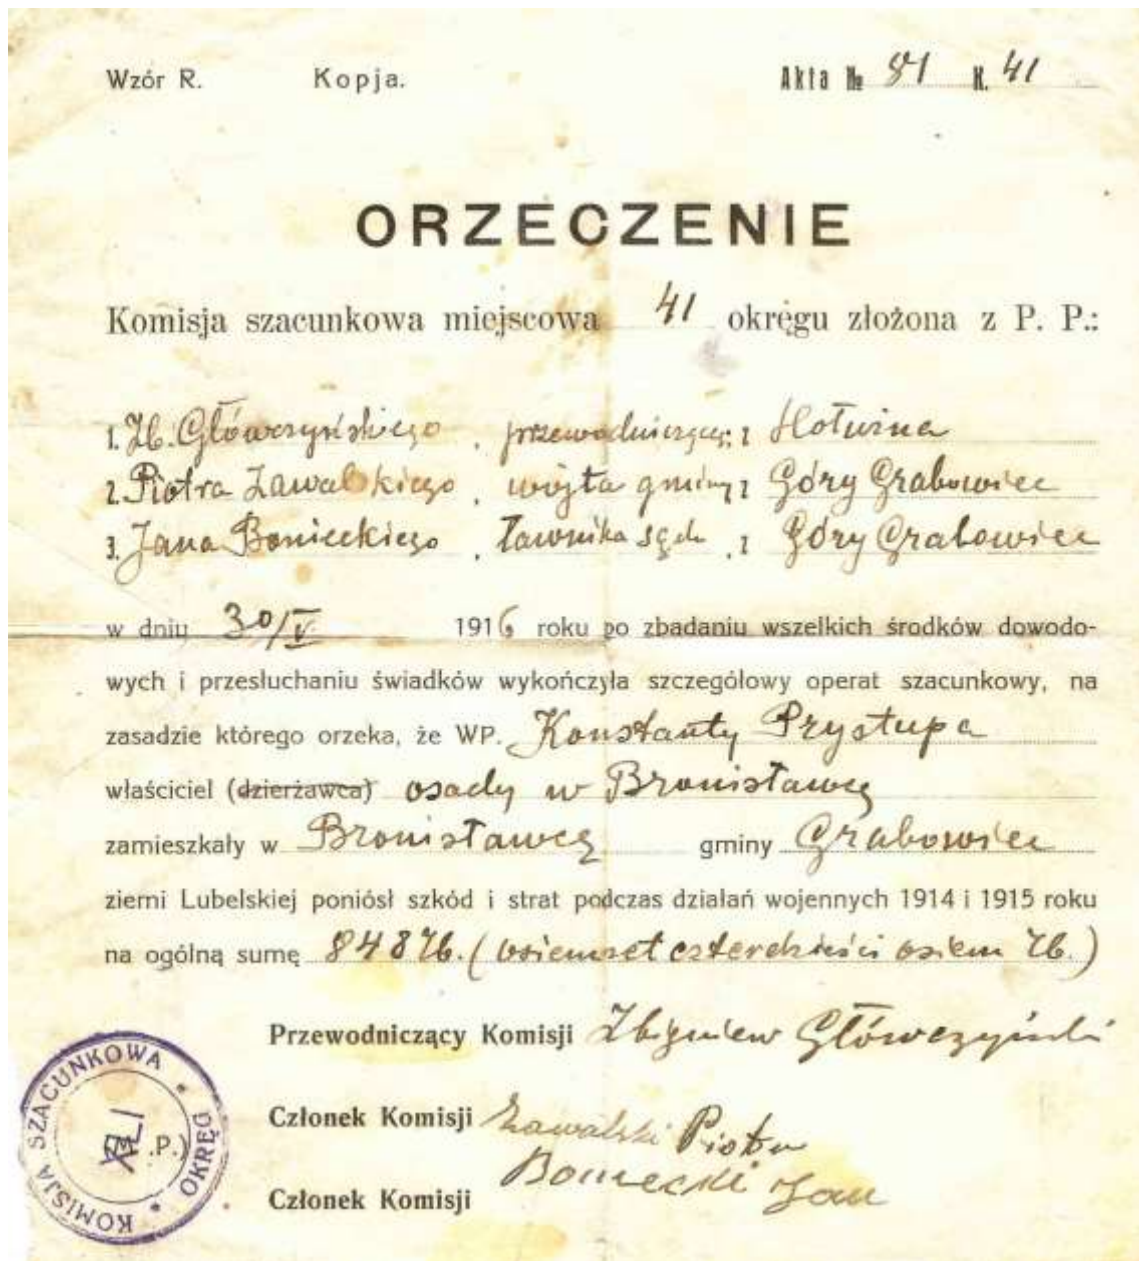 Wzór R. Kopja. Akta № 81 K. 41
ORZECZENIE
Komisja szacunkowa miejscowa 41 okręgu złożona z P. P.:
1. Zb. Główczyńskiego, przewodniczący z Hołużna
2. Piotra Zawalskiego, wójta gminy z Góry Grabowiec
3. Jana Bonieckiego, ławnika sądu, z Góry Grabowiec
w dniu 30/V 1916 roku po zbadaniu wszelkich środków dowodo-
wych i przesłuchaniu świadków wykończyła szczegółowy operat szacunkowy, na
zasadzie którego orzeka, że WP. Konstanty Przystupa
właściciel (dzierżawca) osady w Bronisławcę
zamieszkały w Bronisławcę gminy Grabowiec
ziemi Lubelskiej poniósł szkód i strat podczas działań wojennych 1914 i 1915 roku
na ogólną sumę 848 rb. (osiemset czterdzieści osiem rb.)
Przewodniczący Komisji Zbigniew Główczyński
Członek Komisji Zawalski Piotr
Członek Komisji Boniecki Jan
KOMISJA SZACUNKOWA * OKRĘG *
XLI
(M.P.)